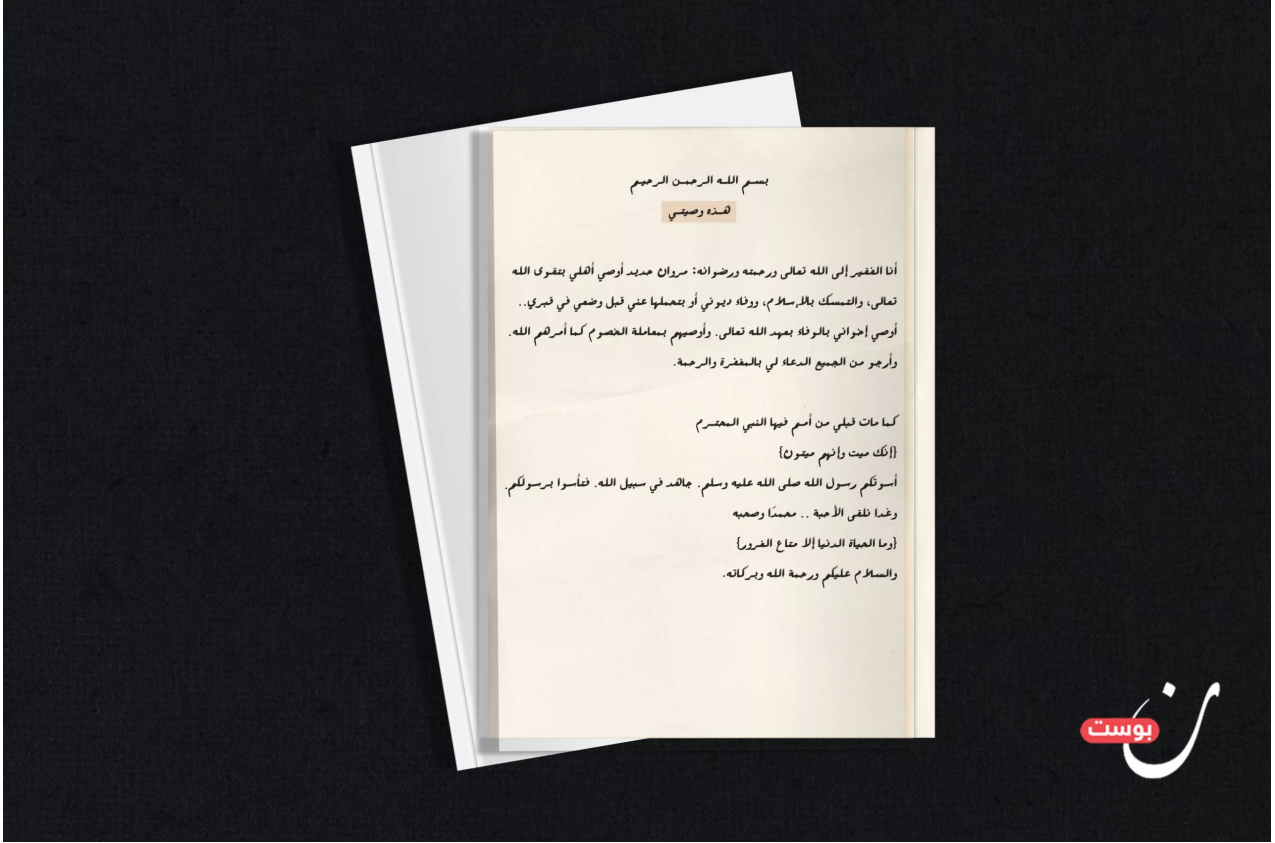 بسم الله الرحمن الرحيم
هذه وصيتي
أنا الفقير إلى الله تعالى ورحمته ورضوانه: مروان حديد أوصي أهلي بتقوى الله
تعالى، والتمسك بالإسلام، ووفاء ديوني أو بتحملها عني قبل وضعي في قبري..
أوصي إخواني بالوفاء بعهد الله تعالى. وأوصيهم بمعاملة الخصوم كما أمرهم الله.
وأرجو من الجميع الدعاء لي بالمغفرة والرحمة.
كما مات قبلي من أمم فيها النبي المحترم
{إنك ميت وإنهم ميتون}
أسوتكم رسول الله صلى الله عليه وسلم. جاهد في سبيل الله. فتأسوا برسولكم.
وغدا نلقى الأحبة .. محمدًا وصحبه
{وما الحياة الدنيا إلا متاع الغرور}
والسلام عليكم ورحمة الله وبركاته.
ن بوست